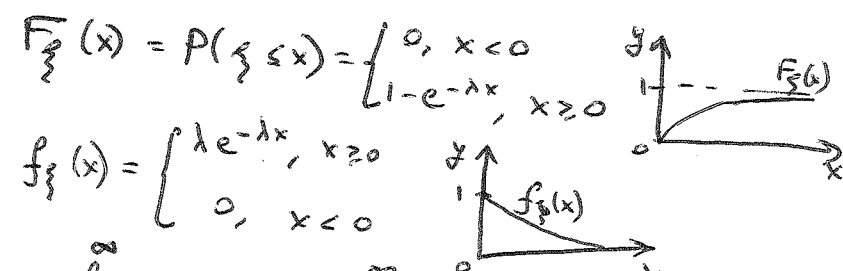 F_ξ(x) = P(ξ ≤ x) = { 0, x < 0
1 - e^{-λx}, x ≥ 0
y
1
F_ξ(x)
0
x
f_ξ(x) = { λe^{-λx}, x ≥ 0
0, x < 0
y
1
f_ξ(x)
∞
∞